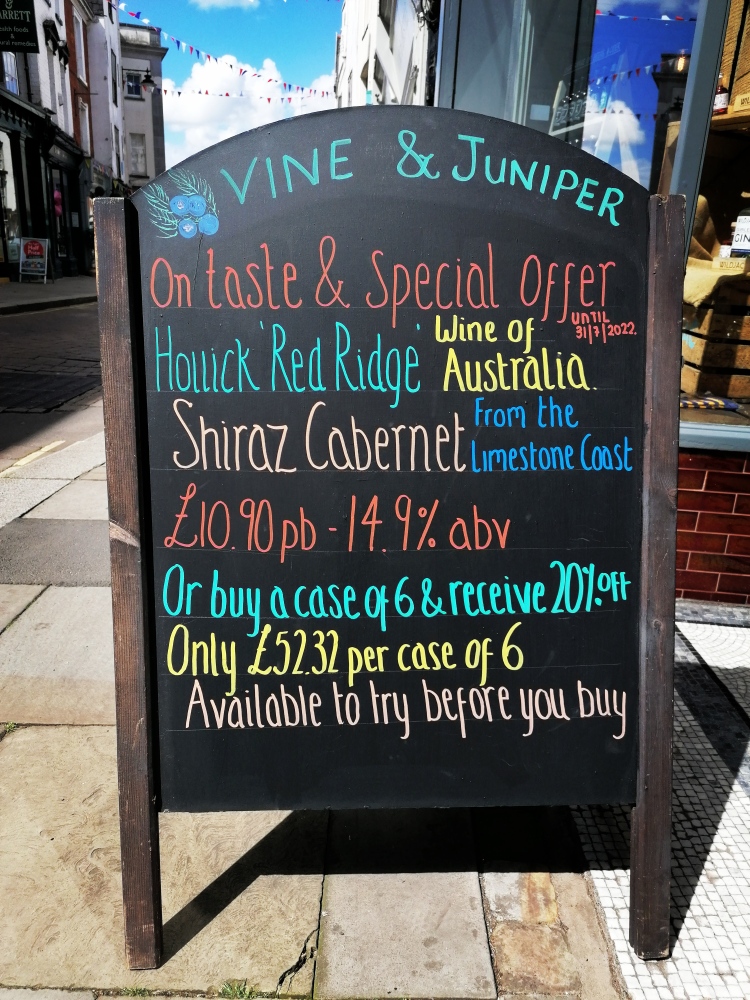 & 
ARRETT
VINE & JUNIPER
On taste & Special Offer
UNTIL
31/7/2022.
Hollick 'Red Ridge' Wine of
Australia.
Shiraz Cabernet From the
Limestone Coast
£10.90 pb - 14.9% abv
Or buy a case of 6 & receive 20% off
Only £52.32 per case of 6
Available to try before you buy
GIN